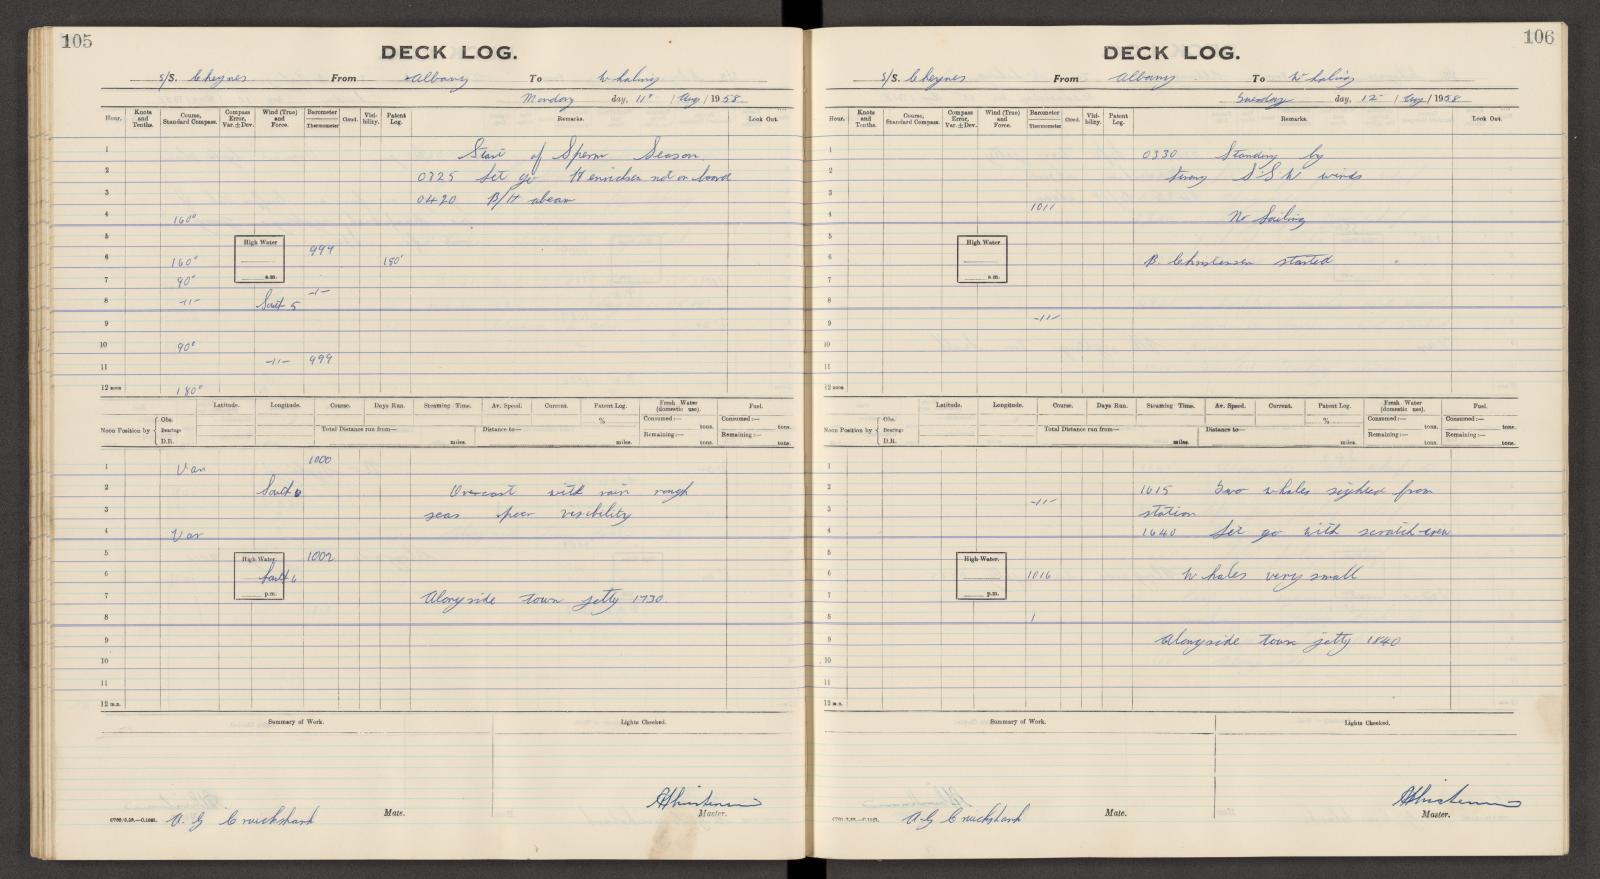 105
DECK LOG.
S/S. Cheynes From Albany To Whaling
Monday day, 11th / Aug / 1958
Hour. Knots and Tenths. Course, Standard Compass. Compass Error, Var. ± Dev. Wind (True) and Force. Barometer Thermometer Cloud. Visibility. Patent Log. Remarks. Look Out.
1 Start of Sperm Season
2 0325 Let go Henricksen not on board
3 0420 B/H abeam
4 160°
5 High Water 999
6 160° 180'
7 90° a.m.
8 -11- South 5 -1-
9
10 90°
11 -11- 999
12 noon 180°
Latitude. Longitude. Course. Days Run. Steaming Time. Av. Speed. Current. Patent Log. Fresh Water (domestic use). Fuel.
Noon Position by Obs. Bearings D.R. % Consumed:— tons. Consumed:— tons.
Total Distance run from— miles. Distance to— miles. Remaining:— tons. Remaining:— tons.
1 Var 1000
2 South 6 Overcast with rain rough
3 seas poor visibility
4 Var
5 High Water. 1002
6 South 6
7 p.m. Alongside town jetty 1730.
8
9
10
11
12 m.n.
Summary of Work. Lights Checked.
A. G Cruickshank Mate. Christensen Master.
106
DECK LOG.
S/S. Cheynes From Albany To Whaling
Tuesday day, 12th / Aug / 1958
Hour. Knots and Tenths. Course, Standard Compass. Compass Error, Var. ± Dev. Wind (True) and Force. Barometer Thermometer Cloud. Visibility. Patent Log. Remarks. Look Out.
1 0330 Standing by
2 strong SSW winds
3
4 1011 No Sailing
5 High Water
6 B. Christensen started
7 a.m.
8
9 -11-
10
11
12 noon
Latitude. Longitude. Course. Days Run. Steaming Time. Av. Speed. Current. Patent Log. Fresh Water (domestic use). Fuel.
Noon Position by Obs. Bearings D.R. % Consumed:— tons. Consumed:— tons.
Total Distance run from— miles. Distance to— miles. Remaining:— tons. Remaining:— tons.
1
2 1615 Two whales sighted from
3 -11- station
4 1640 Let go with scratch crew
5 High Water.
6 1016 Whales very small
7 p.m.
8 1
9 Alongside town jetty 1840
10
11
12 m.n.
Summary of Work. Lights Checked.
A. G Cruickshank Mate. Christensen Master.